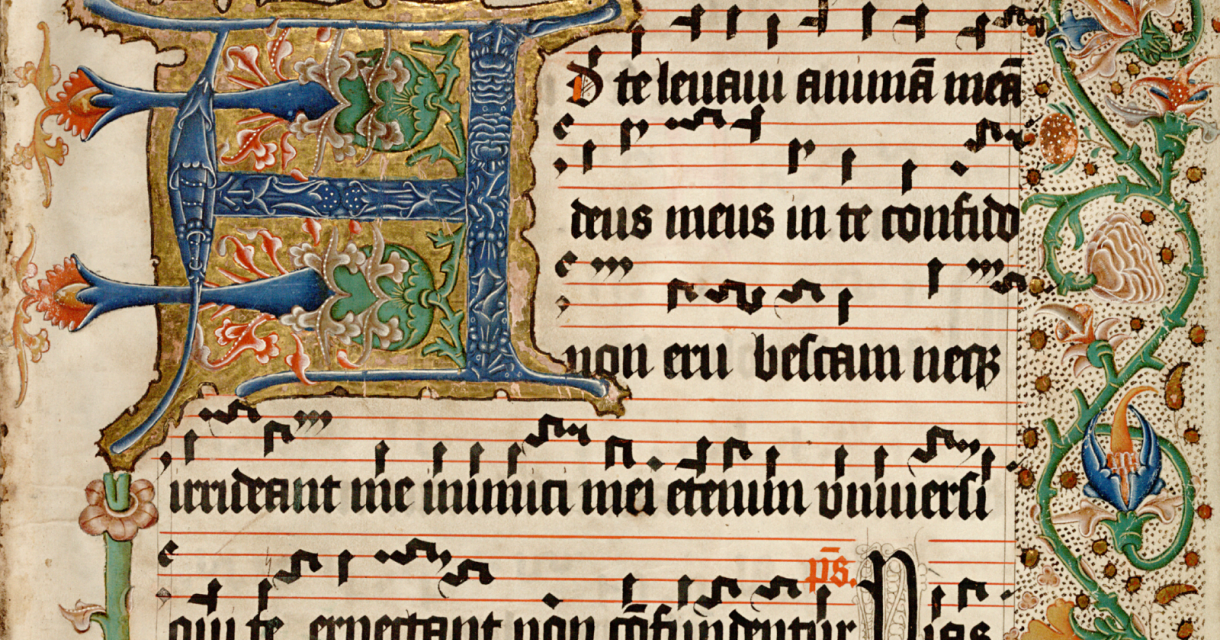 AD te leuaui animā meā
deus meus in te confido
non eru bescam neqꝫ
irrideant me inimici mei etenim vniuersi
qui te expectant non cōfundentur p̄s. Vias